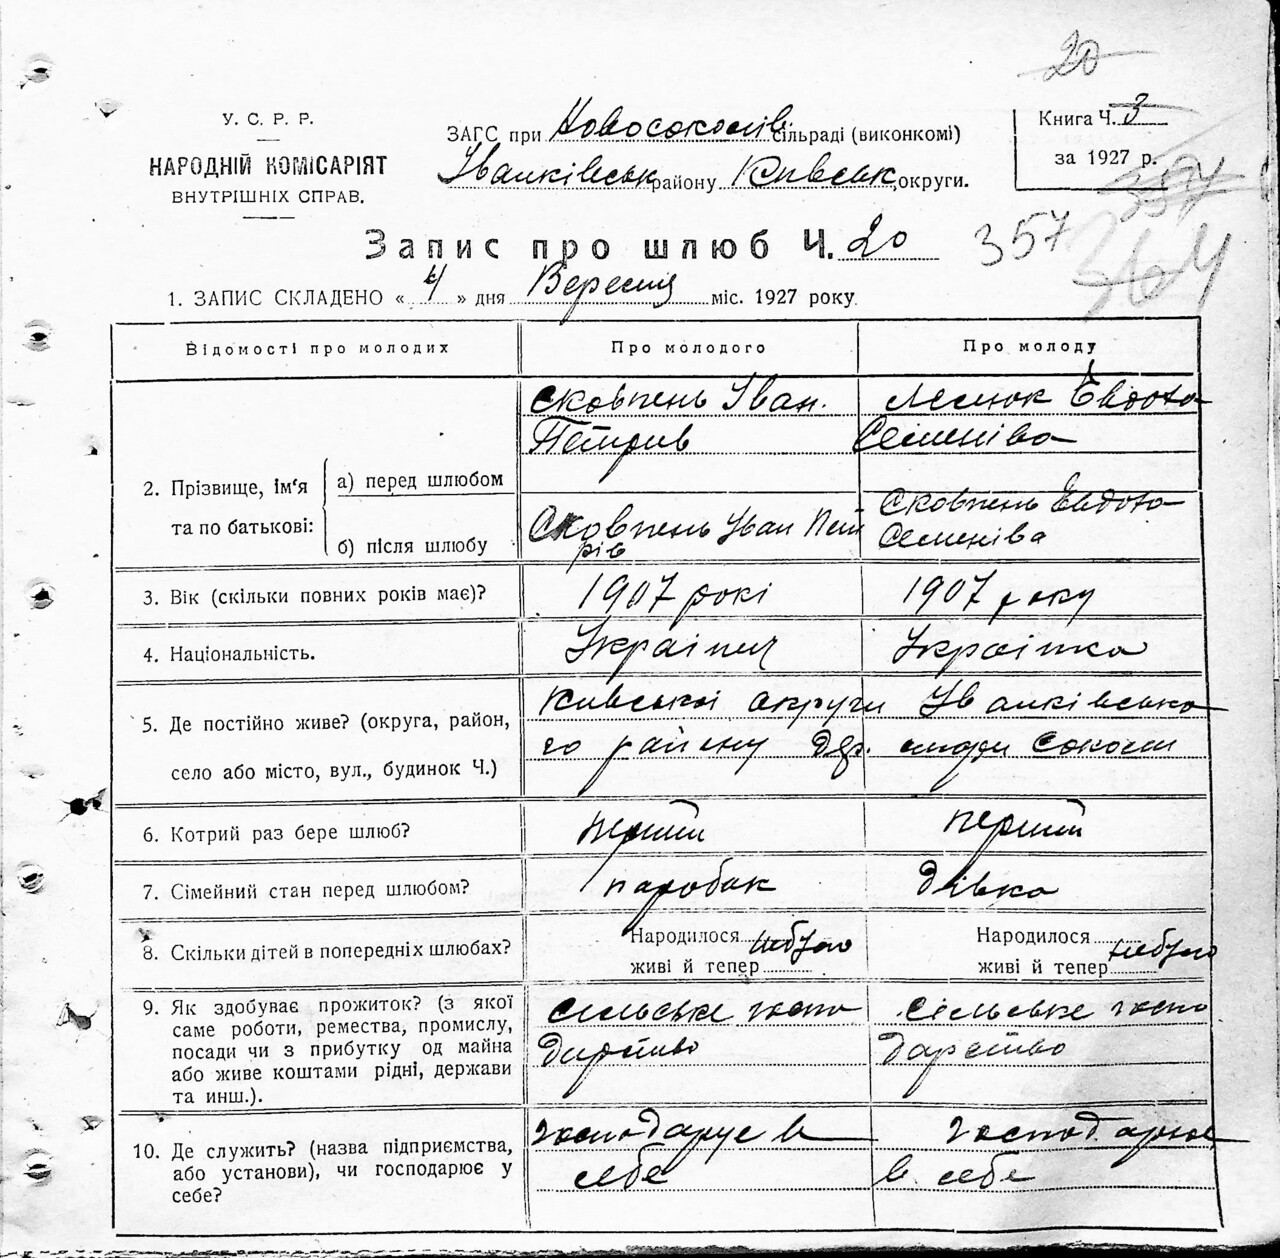 20
У. С. Р. Р.
НАРОДНІЙ КОМІСАРІЯТ
ВНУТРІШНІХ СПРАВ.
ЗАГС при Новосоколів сільраді (виконкомі)
Іванківськ району Київськ округи.
Книга Ч. 3
за 1927 р.
357
357
364
Запис про шлюб Ч. 20
1. ЗАПИС СКЛАДЕНО « 4 » дня Вересня міс. 1927 року
Відомості про молодих
Про молодого
Про молоду
2. Прізвище, ім'я та по батькові:
а) перед шлюбом
Сковпень Іван
Петрив
Евдоха
Семеніва
б) після шлюбу
Сковпень Іван Пет
рів
Сковпень Евдоха
Семеніва
3. Вік (скільки повних років має)?
1907 році
1907 року
4. Національність.
Українец
Українка
5. Де постійно живе? (округа, район,
село або місто, вул., будинок Ч.)
Кивської округи Іванківсько
го району дер.
6. Котрий раз бере шлюб?
перший
перший
7. Сімейний стан перед шлюбом?
паробак
дівка
8. Скільки дітей в попередніх шлюбах?
Народилося небуло
живі й тепер
Народилося небуло
живі й тепер
9. Як здобуває прожиток? (з якої
саме роботи, ремества, промислу,
посади чи з прибутку од майна
або живе коштами рідні, держави
та инш.).
Сільське госпо
дарство
Сільське госпо
дарство
10. Де служить? (назва підприємства,
або установи), чи господарює у
себе?
господарує в
себе
господарює
в себе